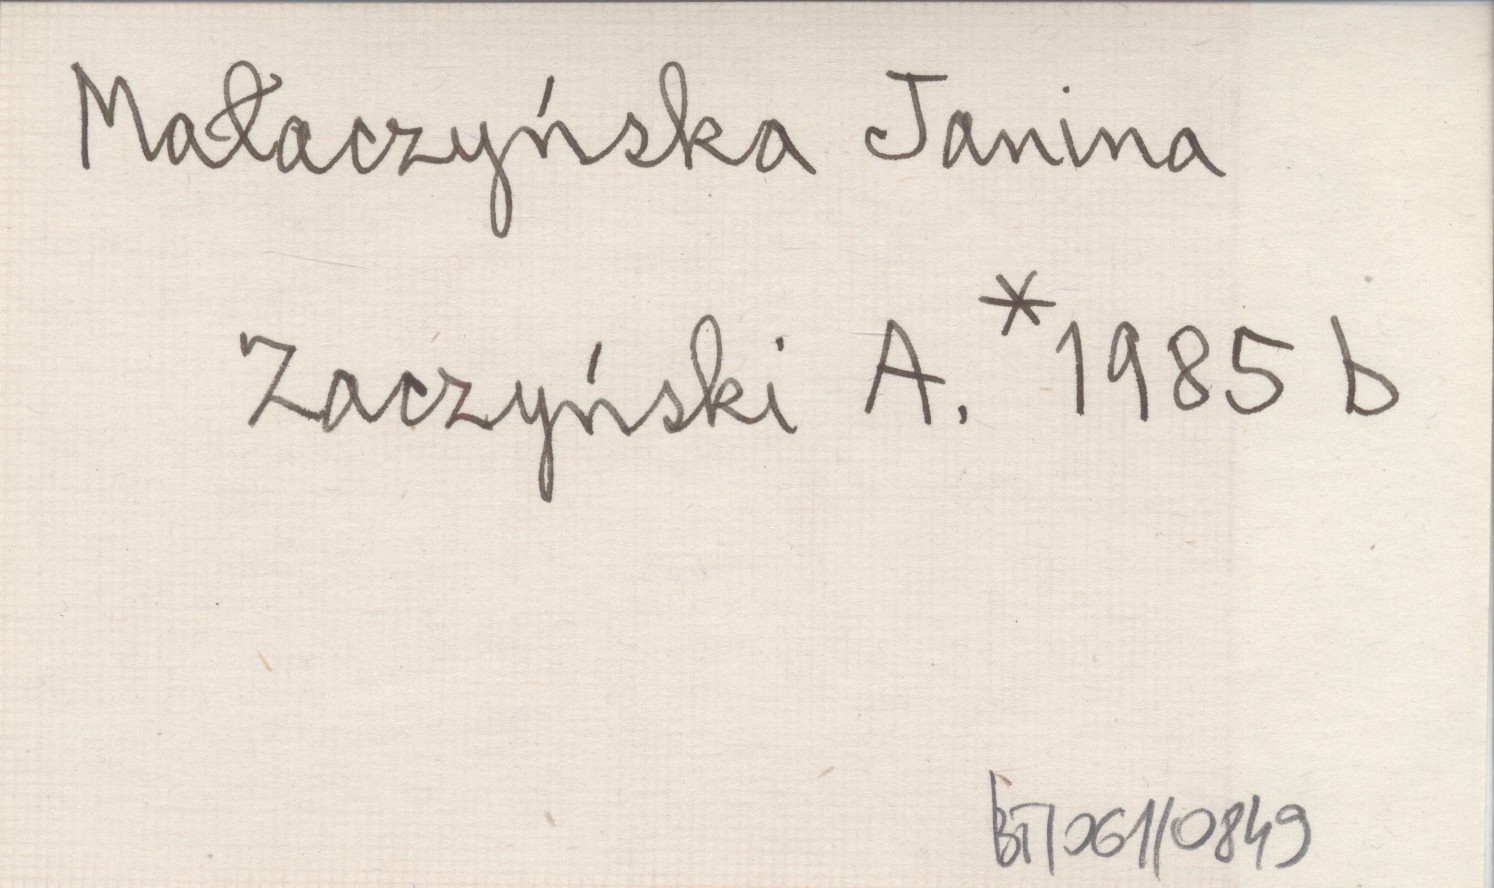 Małaczyńska Janina
Zaczyński A.*1985 b
BT/061/0849